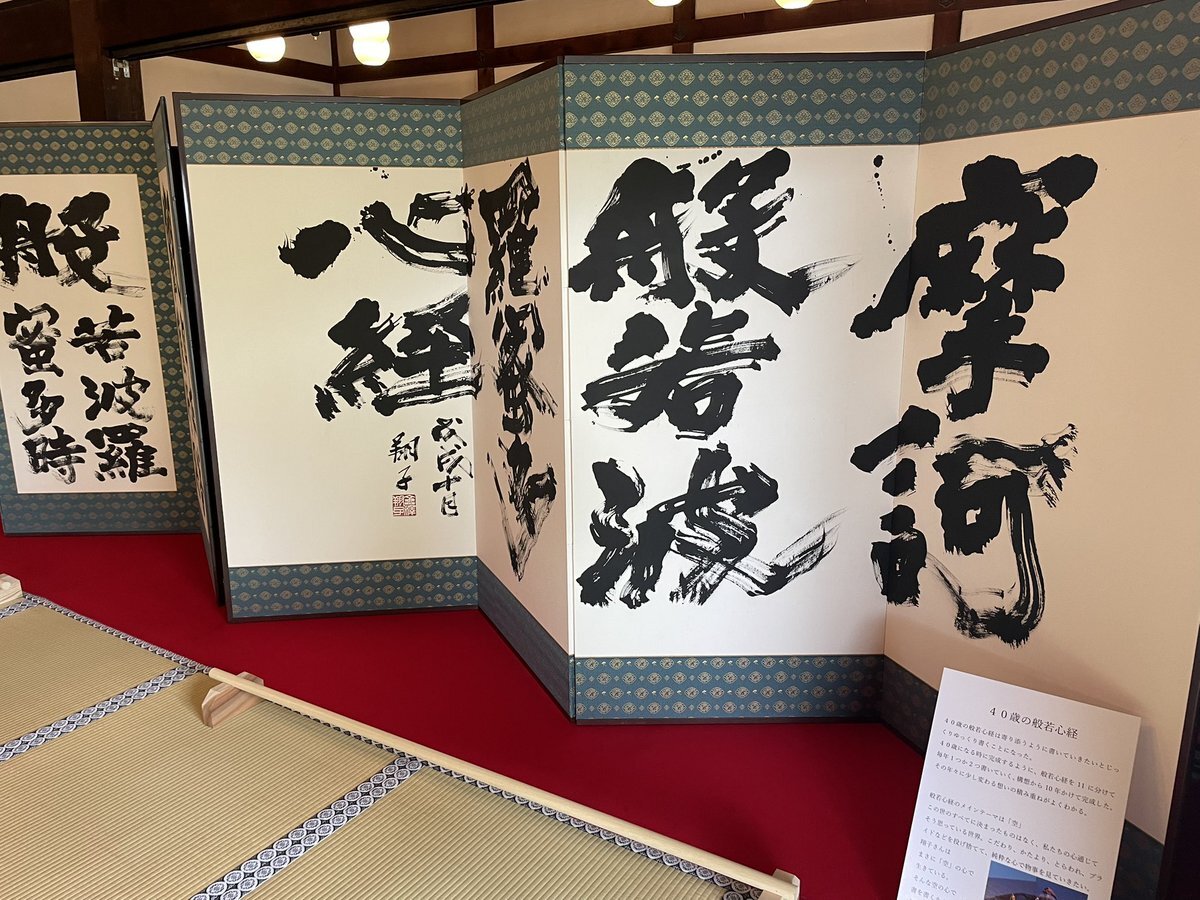 摩訶
般若波
羅蜜多
心経
戊戌十月
翔子
般
若波羅
蜜多時
４０歳の般若心経
４０歳の般若心経は寄り添うように書いていきたいとじっ
くりゆっくり書くことになった。
４０歳になる時に完成するように、般若心経を 11 に分けて
毎年１つか２つ書いていく、構想から 10 年かけて完成した。
その年々に少し変わる想いの積み重ねがよくわかる。
般若心経のメインテーマは「空」
この世のすべてに決まったものはなく、私たちの心通じて
そう思っている世界、こだわり、かたより、とらわれ、プラ
イドなどを投げ捨てて、純粋な心で物事を見ていきたい。
翔子さんは
まさに「空」の心で
生きている。
そんな空の心で
書を書く